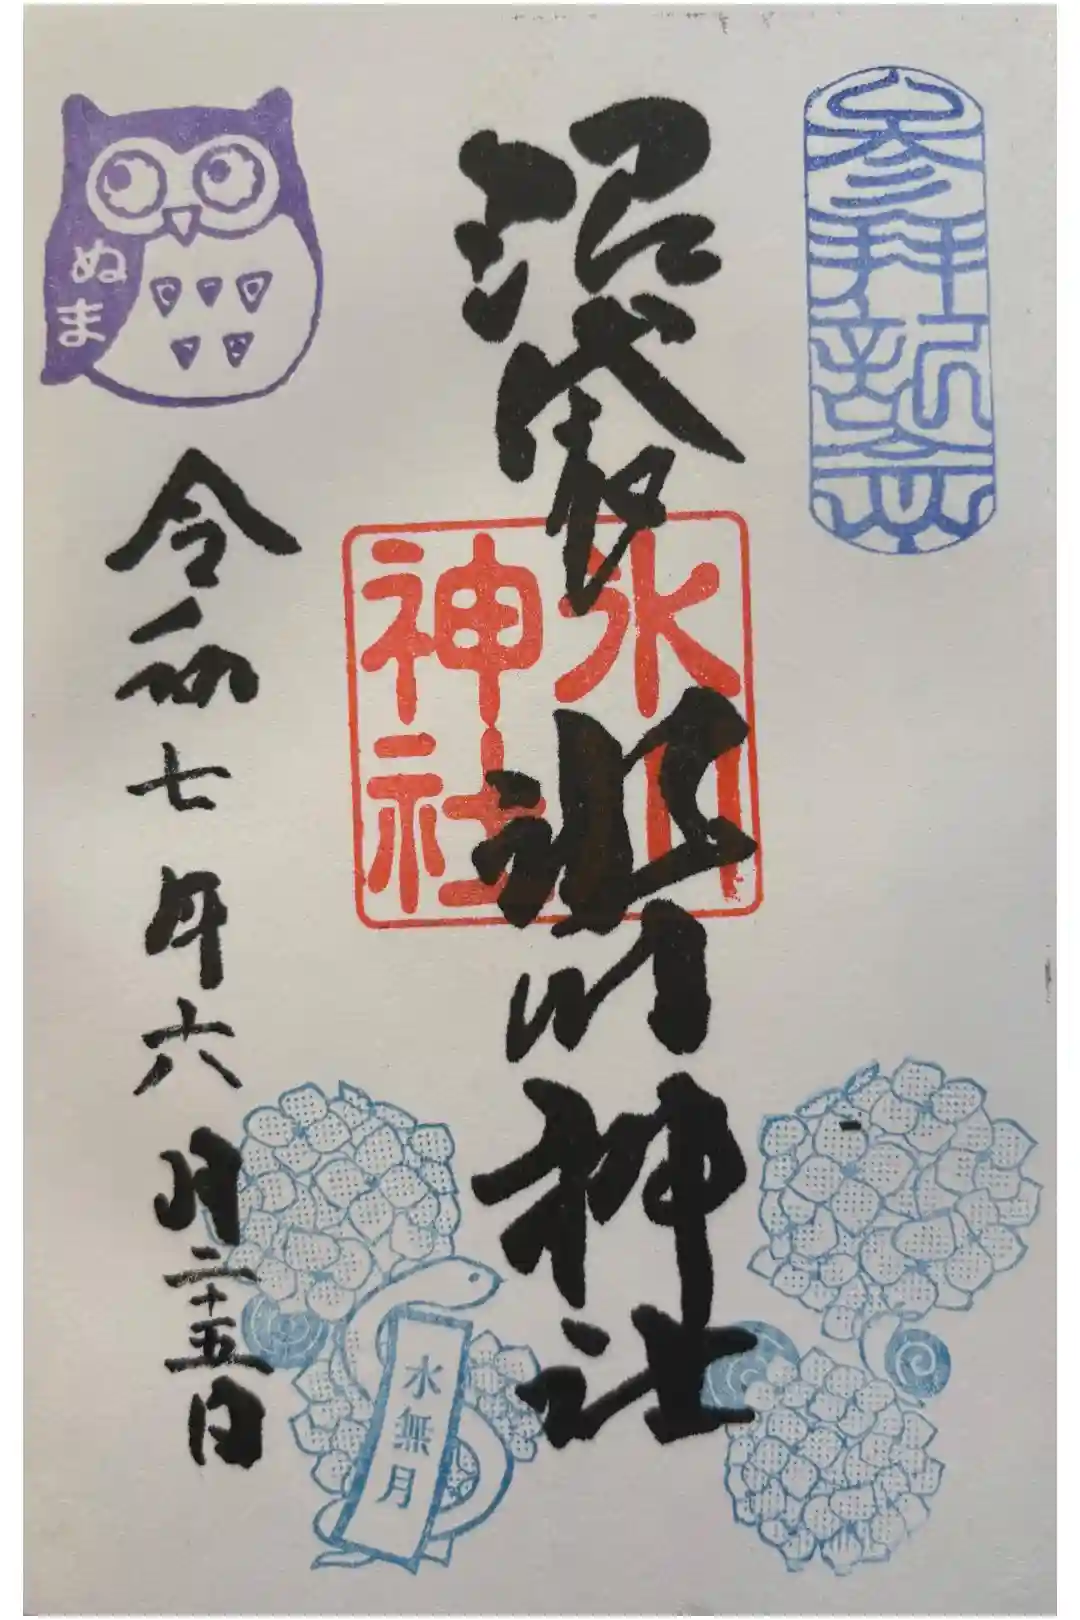 参拝祈念
沼袋氷川神社
氷川
神社
ぬま
令和七年六月二十五日
水無月